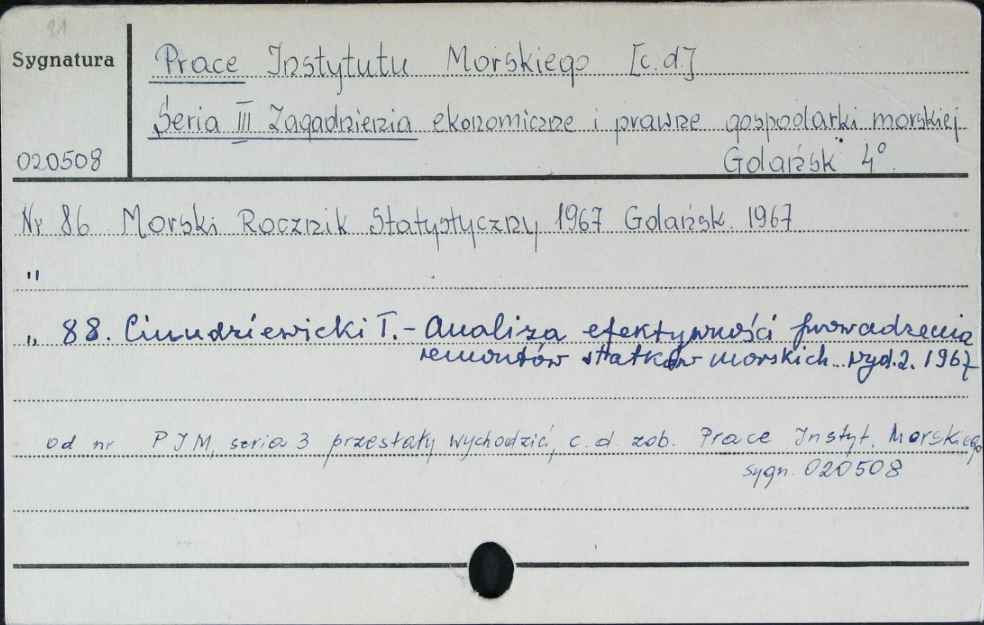 21
Sygnatura
Prace Instytutu Morskiego [c.d.]
Seria III Zagadnienia ekonomiczne i prawne gospodarki morskiej
020508
Gdańsk 4°.
Nr 86 Morski Rocznik Statystyczny 1967 Gdańsk. 1967
"
" 88. T. - Analiza efektywności prowadzenia
remontów statków morskich. Wyd. 2. 1967
od nr PIM, seria 3 przestały wychodzić, c.d. zob. Prace Instyt. Morskiego
sygn. 020508